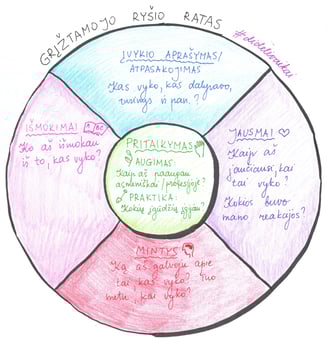 GRĮŽTAMOJO RYŠIO RATAS
#didelivaikai
ĮVYKIO APRAŠYMAS/
ATPASAKOJIMAS
Kas vyko, kas dalyvavo,
veiksmas ir pan.?
IŠMOKIMAI
Ko aš išmokau
iš to, kas vyko?
PRITAIKYMAS
AUGIMAS:
Kaip aš paaugau
asmeniškai/profesijoje?
PRAKTIKA:
Kokius įgūdžius įgijau?
JAUSMAI
Kaip aš
jaučiausi, kai
tai vyko?
Kokios buvo
mano reakcijos?
MINTYS
Ką aš galvoju apie
tai kas vyko? Tuo
metu, kai vyko?